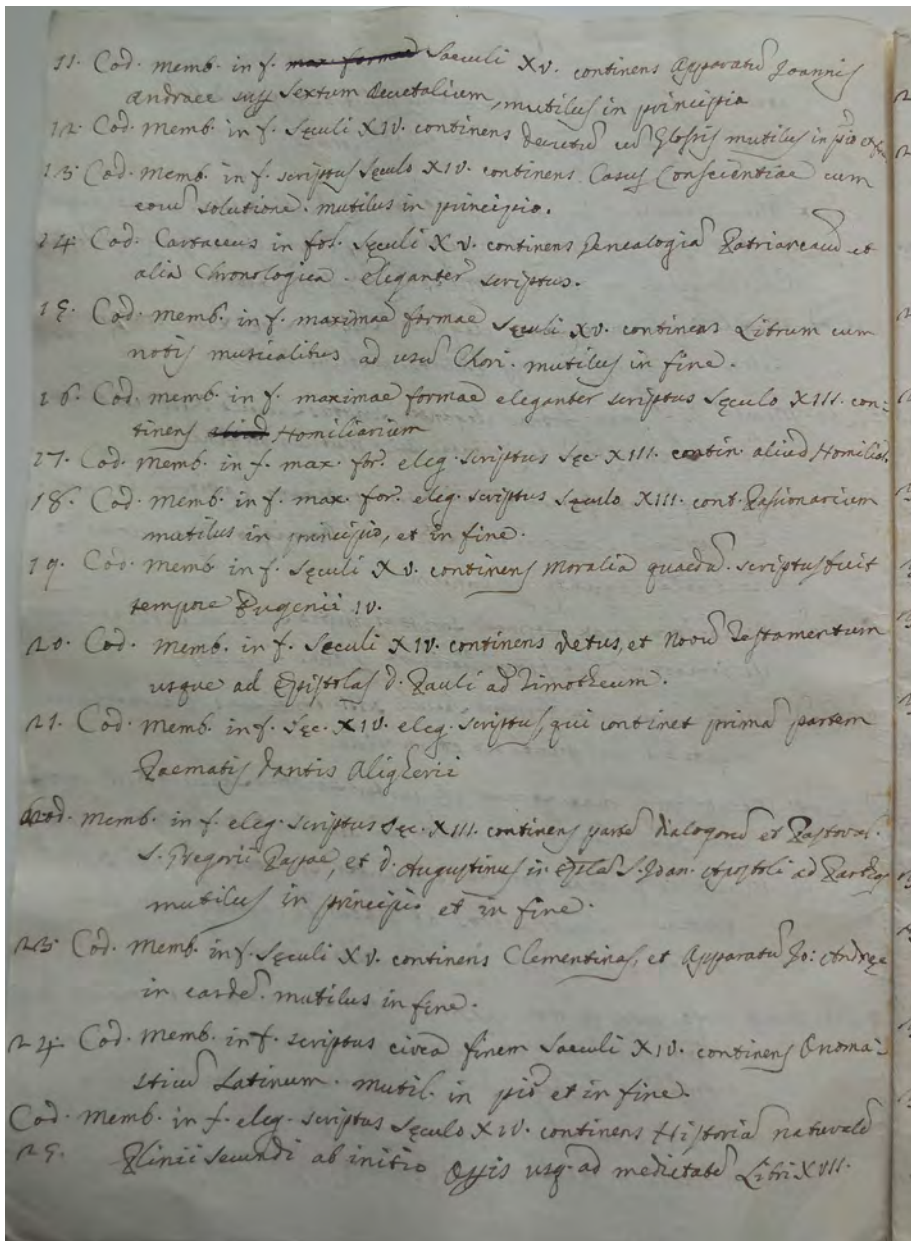 11. Cod. memb. in f. max formae Saeculi XV. continens Apparatũ Joannis
Andraee sup̃ Sextum decretalium, mutilus in principio
12. Cod. Memb. in f. Sęculi XIV. continens decretũ cũ Glossis mutilus in pio et
13. Cod. Memb. in f. scriptus Sęculo XIV. continens Casus Conscientiae cum
eorũ solutione. mutilus in principio.
14 Cod. Cartaceus in fol. Sęculi XV. continens Genealogiã Patriarcarũ et
alia Chronologica. eleganter scriptus.
15. Cod. memb. in f. maximae formae Sęculi XV. continens Librum cum
notis musicalibus ad usũ Chori. mutilus in fine.
16. Cod. memb. in f. maximae formae eleganter scriptus Sęculo XIII. con:
tinens Homiliarium
17. Cod. Memb. in f. max. for. eleg. scriptus Sęc. XIII. contin. aliud Homiliar.
18. Cod. Memb. in f. max. for. eleg. scriptus Sęculo XIII. cont. Passionarium
mutilus in principio, et in fine.
19. Cod. Memb in f. Sęculi XV. continens Moralia quaedã. scriptus fuit
tempore Eugenii IV.
20. Cod. memb. in f. Saeculi XIV. continens vetus, et Novũ Testamentum
usque ad Epistolas D. Pauli ad Timotheum.
21. Cod. Memb. in f. Sęc. XIV. eleg. scriptus, qui continet primã partem
Poematis Dantis Aligherii
Cod. memb. in f. eleg. scriptus Sęc. XIII. continens partẽ dialogorũ et Pastoral.
S. Gregorii Papae, et D. Augustinus in Eplã S. Joan. Apostoli ad Parthos
mutilus in principio et in fine.
23. Cod. Memb. in f. Sęculi XV. continens Clementinas, et Apparatũ Jo: Andręę
in easdẽ. mutilus in fine.
24. Cod. Memb. in f. scriptus circa finem Saeculi XIV. continens Onoma:
sticũ Latinum. mutil. in pio et in fine.
Cod. memb. in f. eleg. scriptus Sęculo XIV. continens Historiã naturalẽ
25. Plinii Secundi ab initio Opis usq. ad medietatẽ Libri XVII.